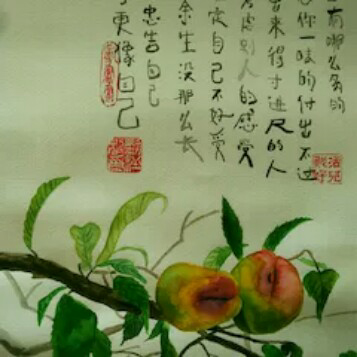 有哪么多的
你一味的付出不过
来得寸进尺的人
虑别人的感受
定自己不好爱
余生没那么长
忠告自己
更像自己